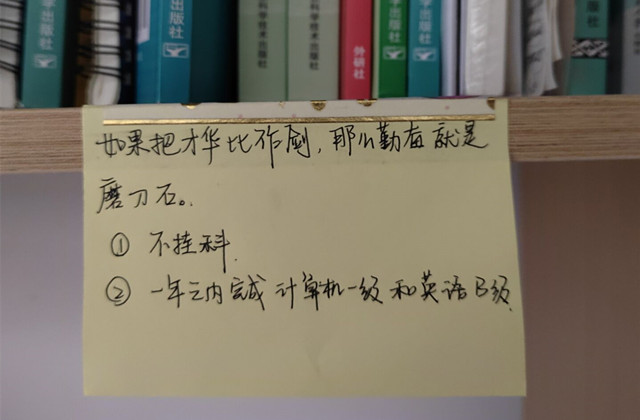 学出版社
出版社
科学技术出版社
科学技术出版社
外研社
学出版社
出版社
如果把才华比作剑,那么勤奋就是
磨刀石。
① 不挂科.
② 一年之内完成计算机一级和英语B级.